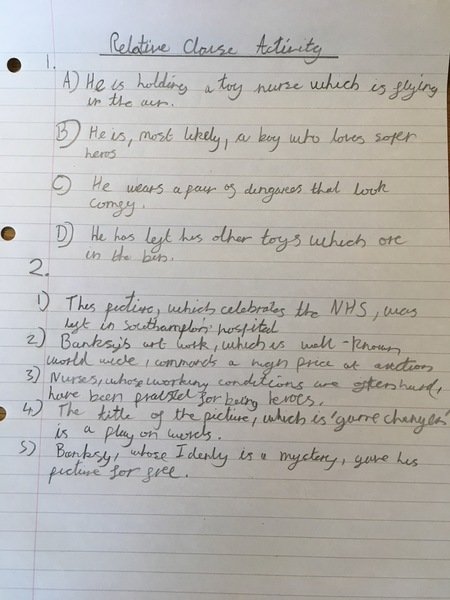 Relative Clause Activity
1.
A) He is holding a toy nurse which is flying
in the air.
B) He is, most likely, a boy who loves super
heros
C) He wears a pair of dungarees that look
comfy.
D) He has left his other toys which are
in the bin.
2.
1) This picture, which celebrates the NHS, was
left in Southampton hospital
2) Banksy's art work, which is well-known
world wide, commands a high price at auctions
3) Nurses, whose working conditions are often hard,
have been praised for being heroes.
4) The title of the picture, which is 'game changer'
is a play on words.
5) Banksy, whose Idenly is a mystery, gave his
picture for free.